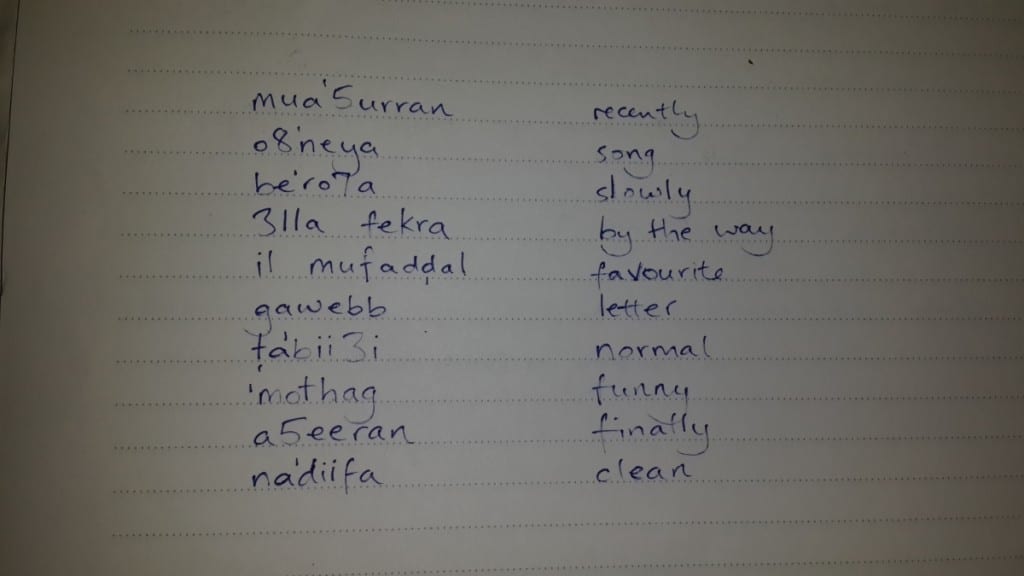 mua'5urran recently
o8'neya song
be'ro7a slowly
3lla fekra by the way
il mufaḍḍal favourite
gawebb letter
ṭábii3i normal
'mothag funny
a5eeran finally
na'diifa clean